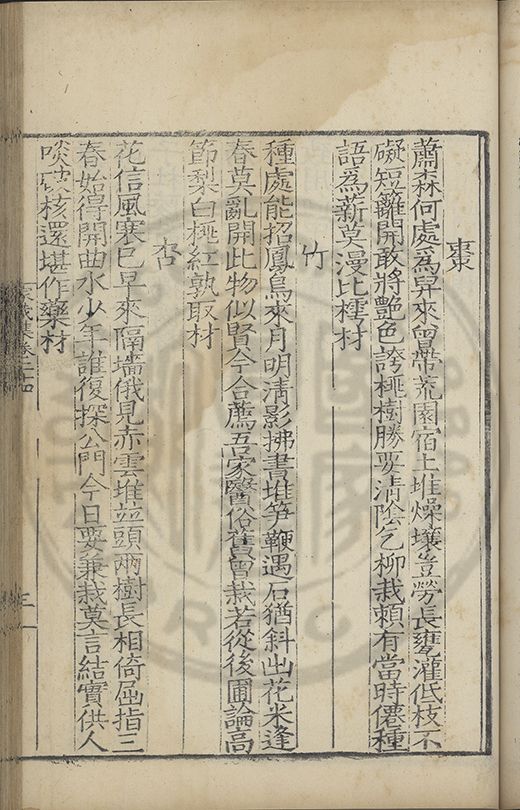 棗
蕭森何處爲舁來曾帶荒園宿土堆燥壤豈勞長甕灌低枝不
礙短籬開敢將艶色誇桃樹勝要清陰乞柳栽賴有當時僊種
語爲薪莫漫比樗材
竹
種處能招鳳鳥來月明清影拂書堆笋鞭遇石猶斜出花米逢
春莫亂開此物似賢今合薦吾家醫俗舊曾栽若從後圃論高
節梨白桃紅孰取材
杏
花信風寒巳早來隔墻俄見赤雲堆竝頭兩樹長相倚屈指三
春始得開曲水少年誰復探公門今日要兼栽莫言結實供人
啖核還堪作藥材
集卷二十四
三